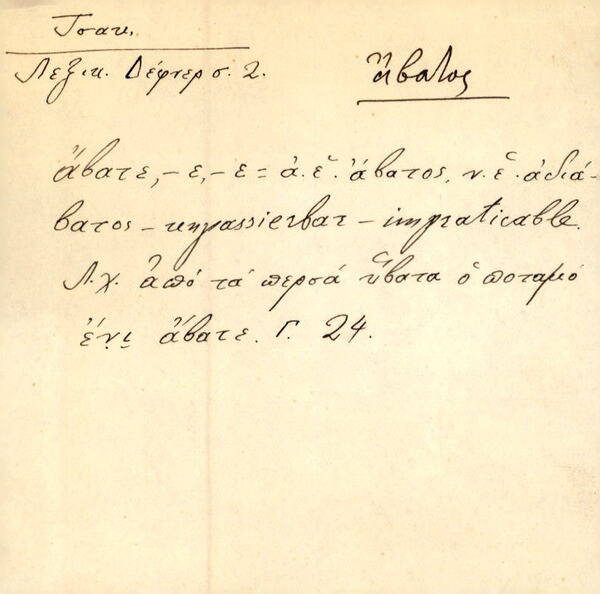 Τσακ.
Λεξικ. Δέφνερ σ. 2.
ἄβατος
ἄβατε, -ε, -ε = ἀ. ἑ. ἄβατος, ν. ἑ. ἀδιά-
βατος - unpassierbar - impraticable.
Λ.χ. ἀπό τα' περσά ὕβατα ὁ ποταμό
ἔνι ἄβατε. Γ. 24.